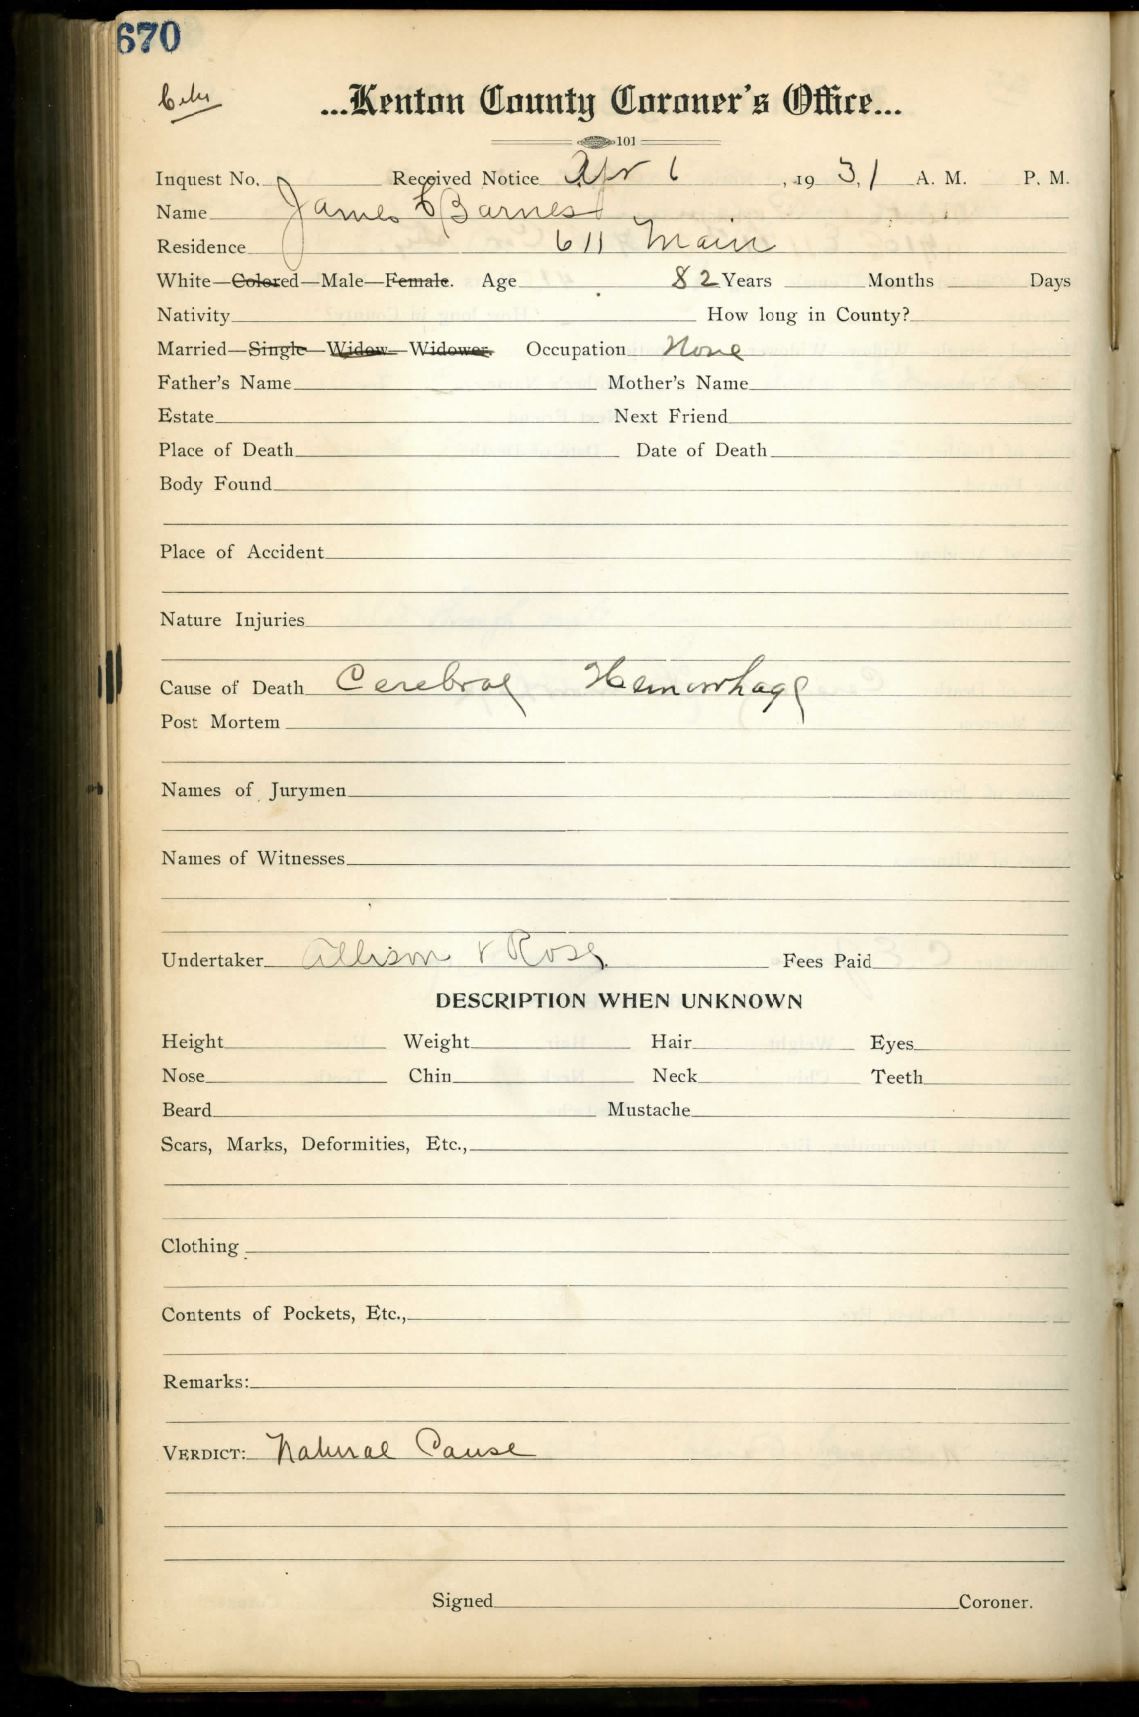 670
City
...Kenton County Coroner's Office...
101
Inquest No. Received Notice Apr 6, 1931 A. M. P. M.
Name James Barnes
Residence 611 Main
White—Colored—Male—Female. Age 82 Years Months Days
Nativity How long in County?
Married—Single—Widow—Widower. Occupation None
Father's Name Mother's Name
Estate Next Friend
Place of Death Date of Death
Body Found
Place of Accident
Nature Injuries
Cause of Death Cerebral Hemorrhage
Post Mortem
Names of Jurymen
Names of Witnesses
Undertaker Allison & Rose Fees Paid
DESCRIPTION WHEN UNKNOWN
Height Weight Hair Eyes
Nose Chin Neck Teeth
Beard Mustache
Scars, Marks, Deformities, Etc.,
Clothing
Contents of Pockets, Etc.,
Remarks:
VERDICT: Natural Cause
Signed Coroner.